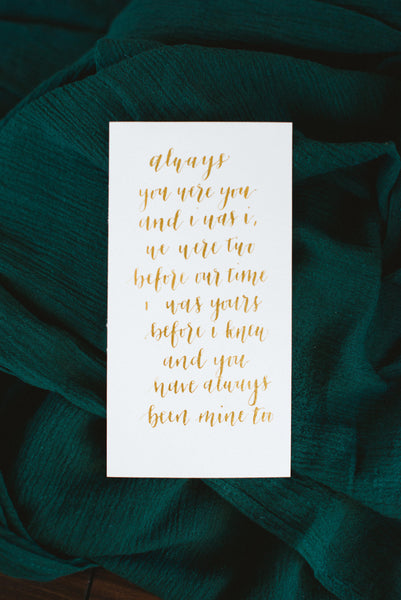 always
you were you
and i was i,
we were two
before our time
i was yours
before i knew
and you
have always
been mine too